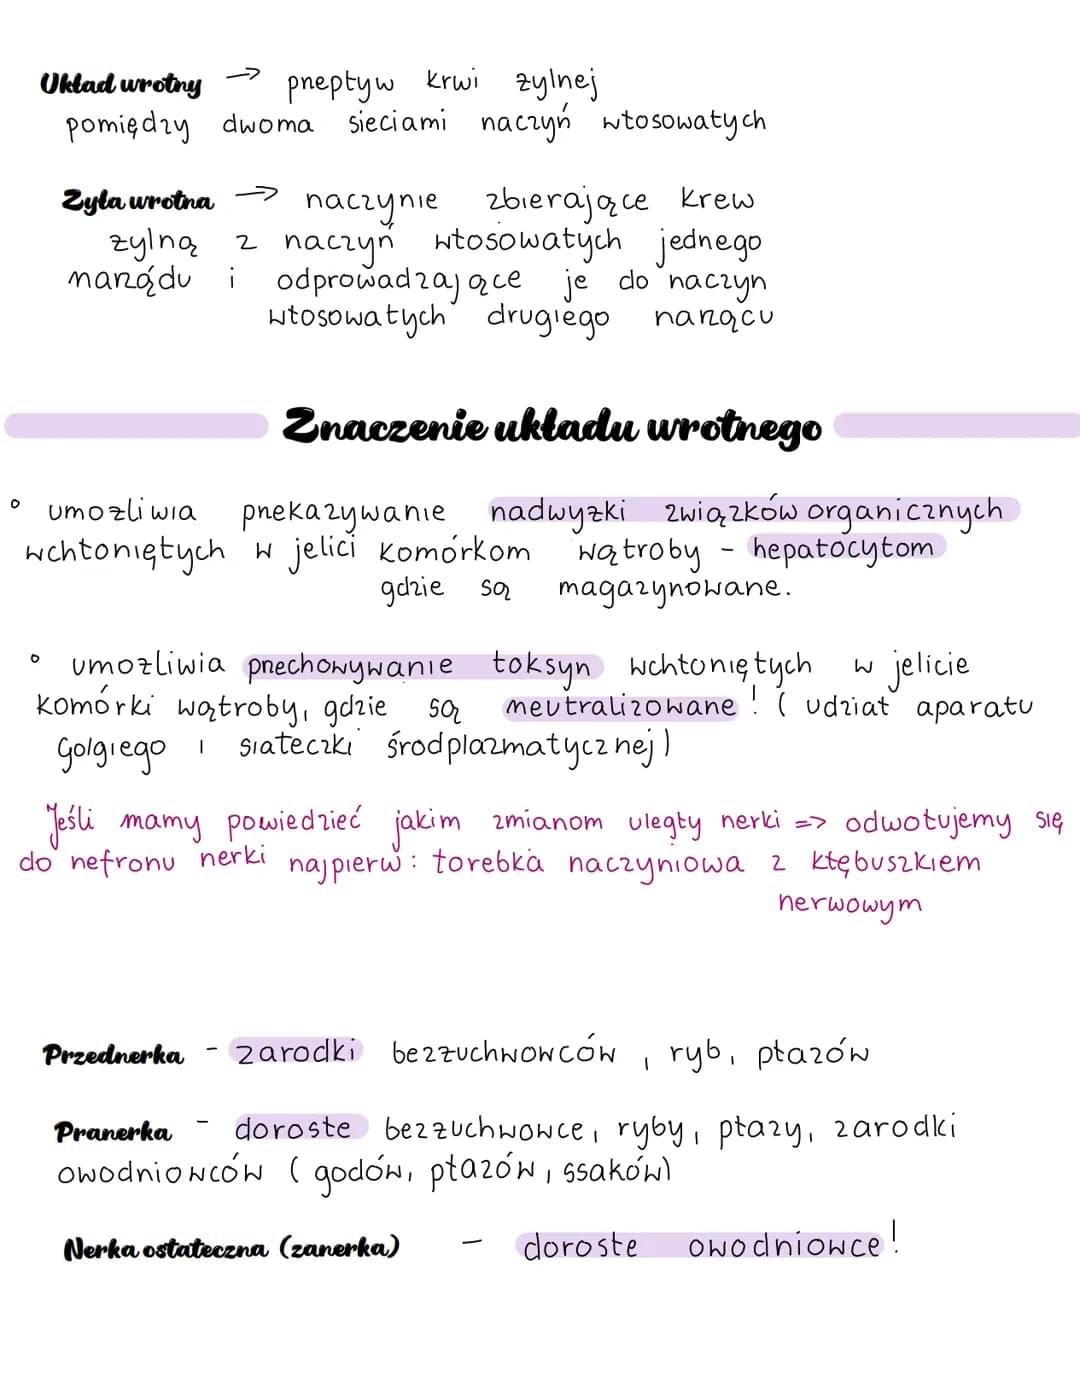 Układ wrotny → przepływ krwi żylnej
pomiędzy dwoma sieciami naczyń włosowatych
Żyła wrotna → naczynie zbierające krew
żylną z naczyń włosowatych jednego
narządu i odprowadzające je do naczyń
włosowatych drugiego narządu
Znaczenie układu wrotnego
° umożliwia przekazywanie nadwyżki związków organicznych
wchłoniętych w jelici komórkom wątroby - hepatocytom
gdzie są magazynowane.
° umożliwia przechowywanie toksyn wchłoniętych w jelicie
komórki wątroby, gdzie są neutralizowane! (udział aparatu
Golgiego i siateczki śródplazmatycznej)
Jeśli mamy powiedzieć jakim zmianom uległy nerki => odwołujemy się
do nefronu nerki najpierw: torebka naczyniowa z kłębuszkiem
nerwowym
Przednerka - zarodki bezżuchwowców, ryb, płazów
Pranerka - dorosłe bezżuchwowce, ryby, płazy, zarodki
owodniowców (gadów, ptazów, ssaków)
Nerka ostateczna (zanerka) - dorosłe owodniowce!